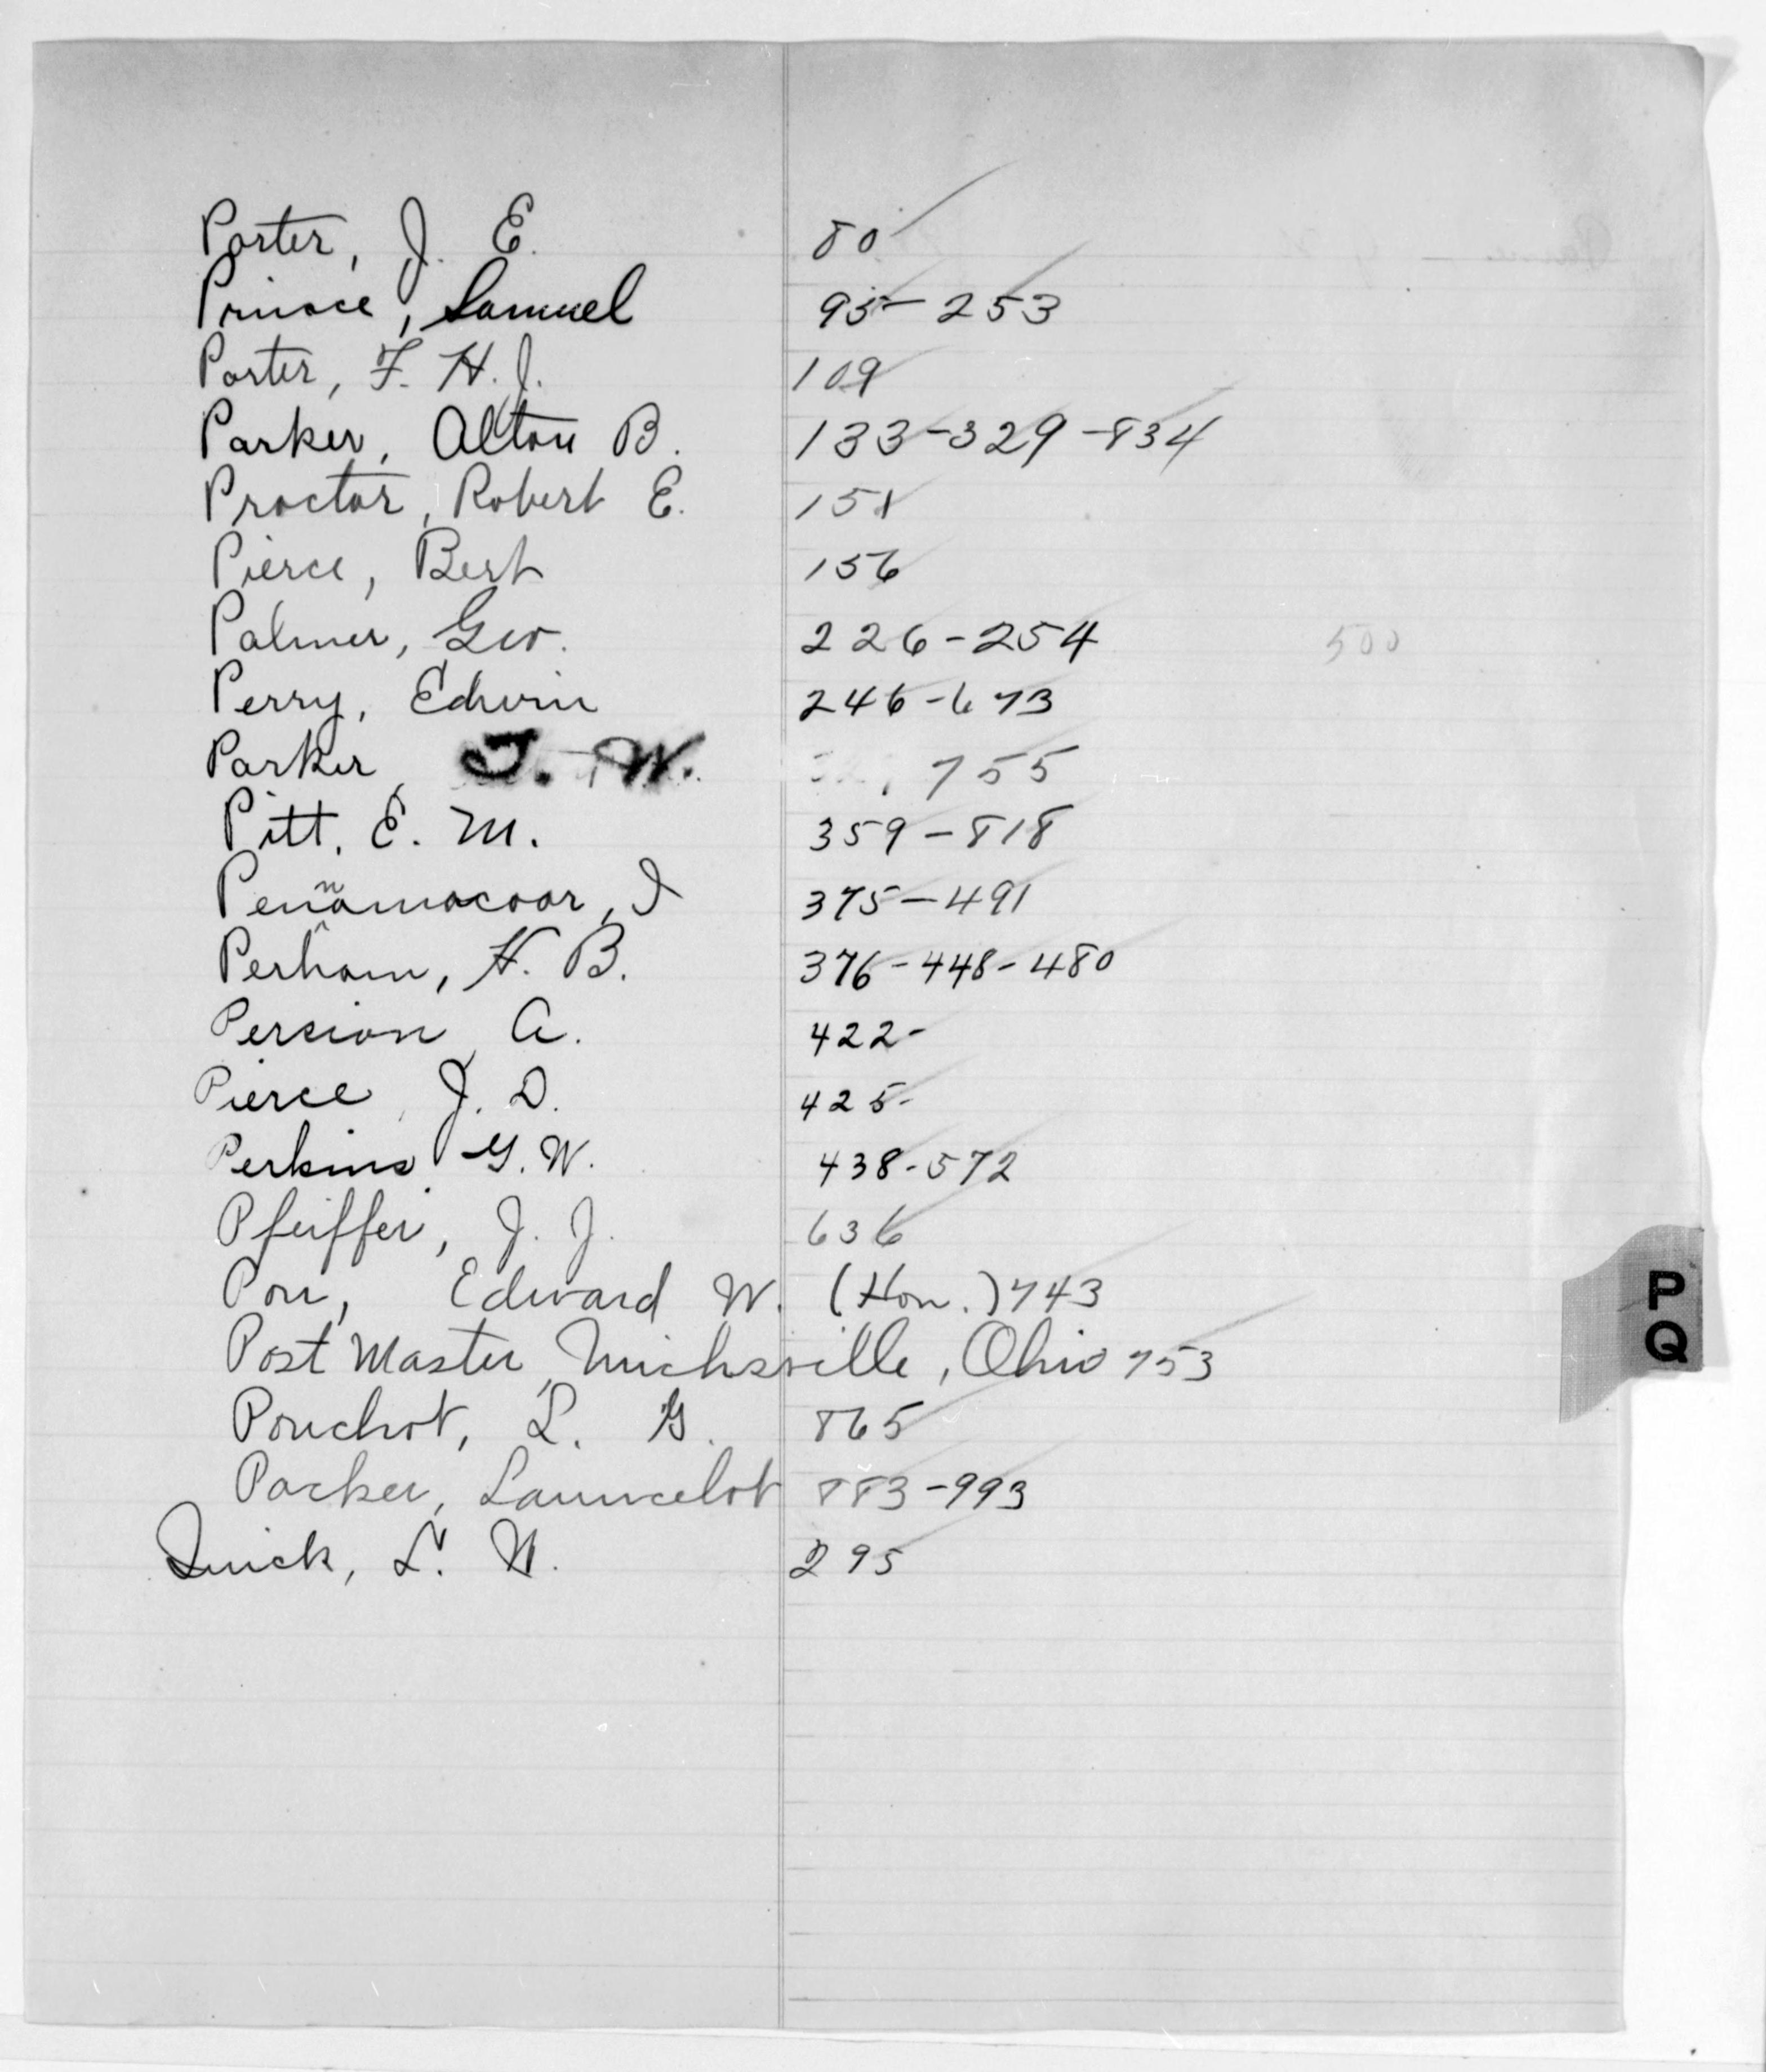 Porter, J. E. 80
Prince, Samuel 95-253
Porter, F. H. J. 109
Parker, Alton B. 133-329-834
Proctor, Robert E. 151
Pierce, Bert 156
Palmer, Geo. 226-254 500
Perry, Edwin 246-673
Parker, J. W. 755
Pitt, E. M. 359-818
Pennamacoor, I 375-491
Perham, H. B. 376-448-480
Persion, A. 422-
Pierce, J. D. 425-
Perkins, G. W. 438-572
Pfeiffer, J. J. 636
Pou, Edward W. (Hon.) 743
Post Master, Ohio 753
Pouchot, L. G. 865
Packer, Launcelot 883-993
Quick, L. W. 295
P
Q